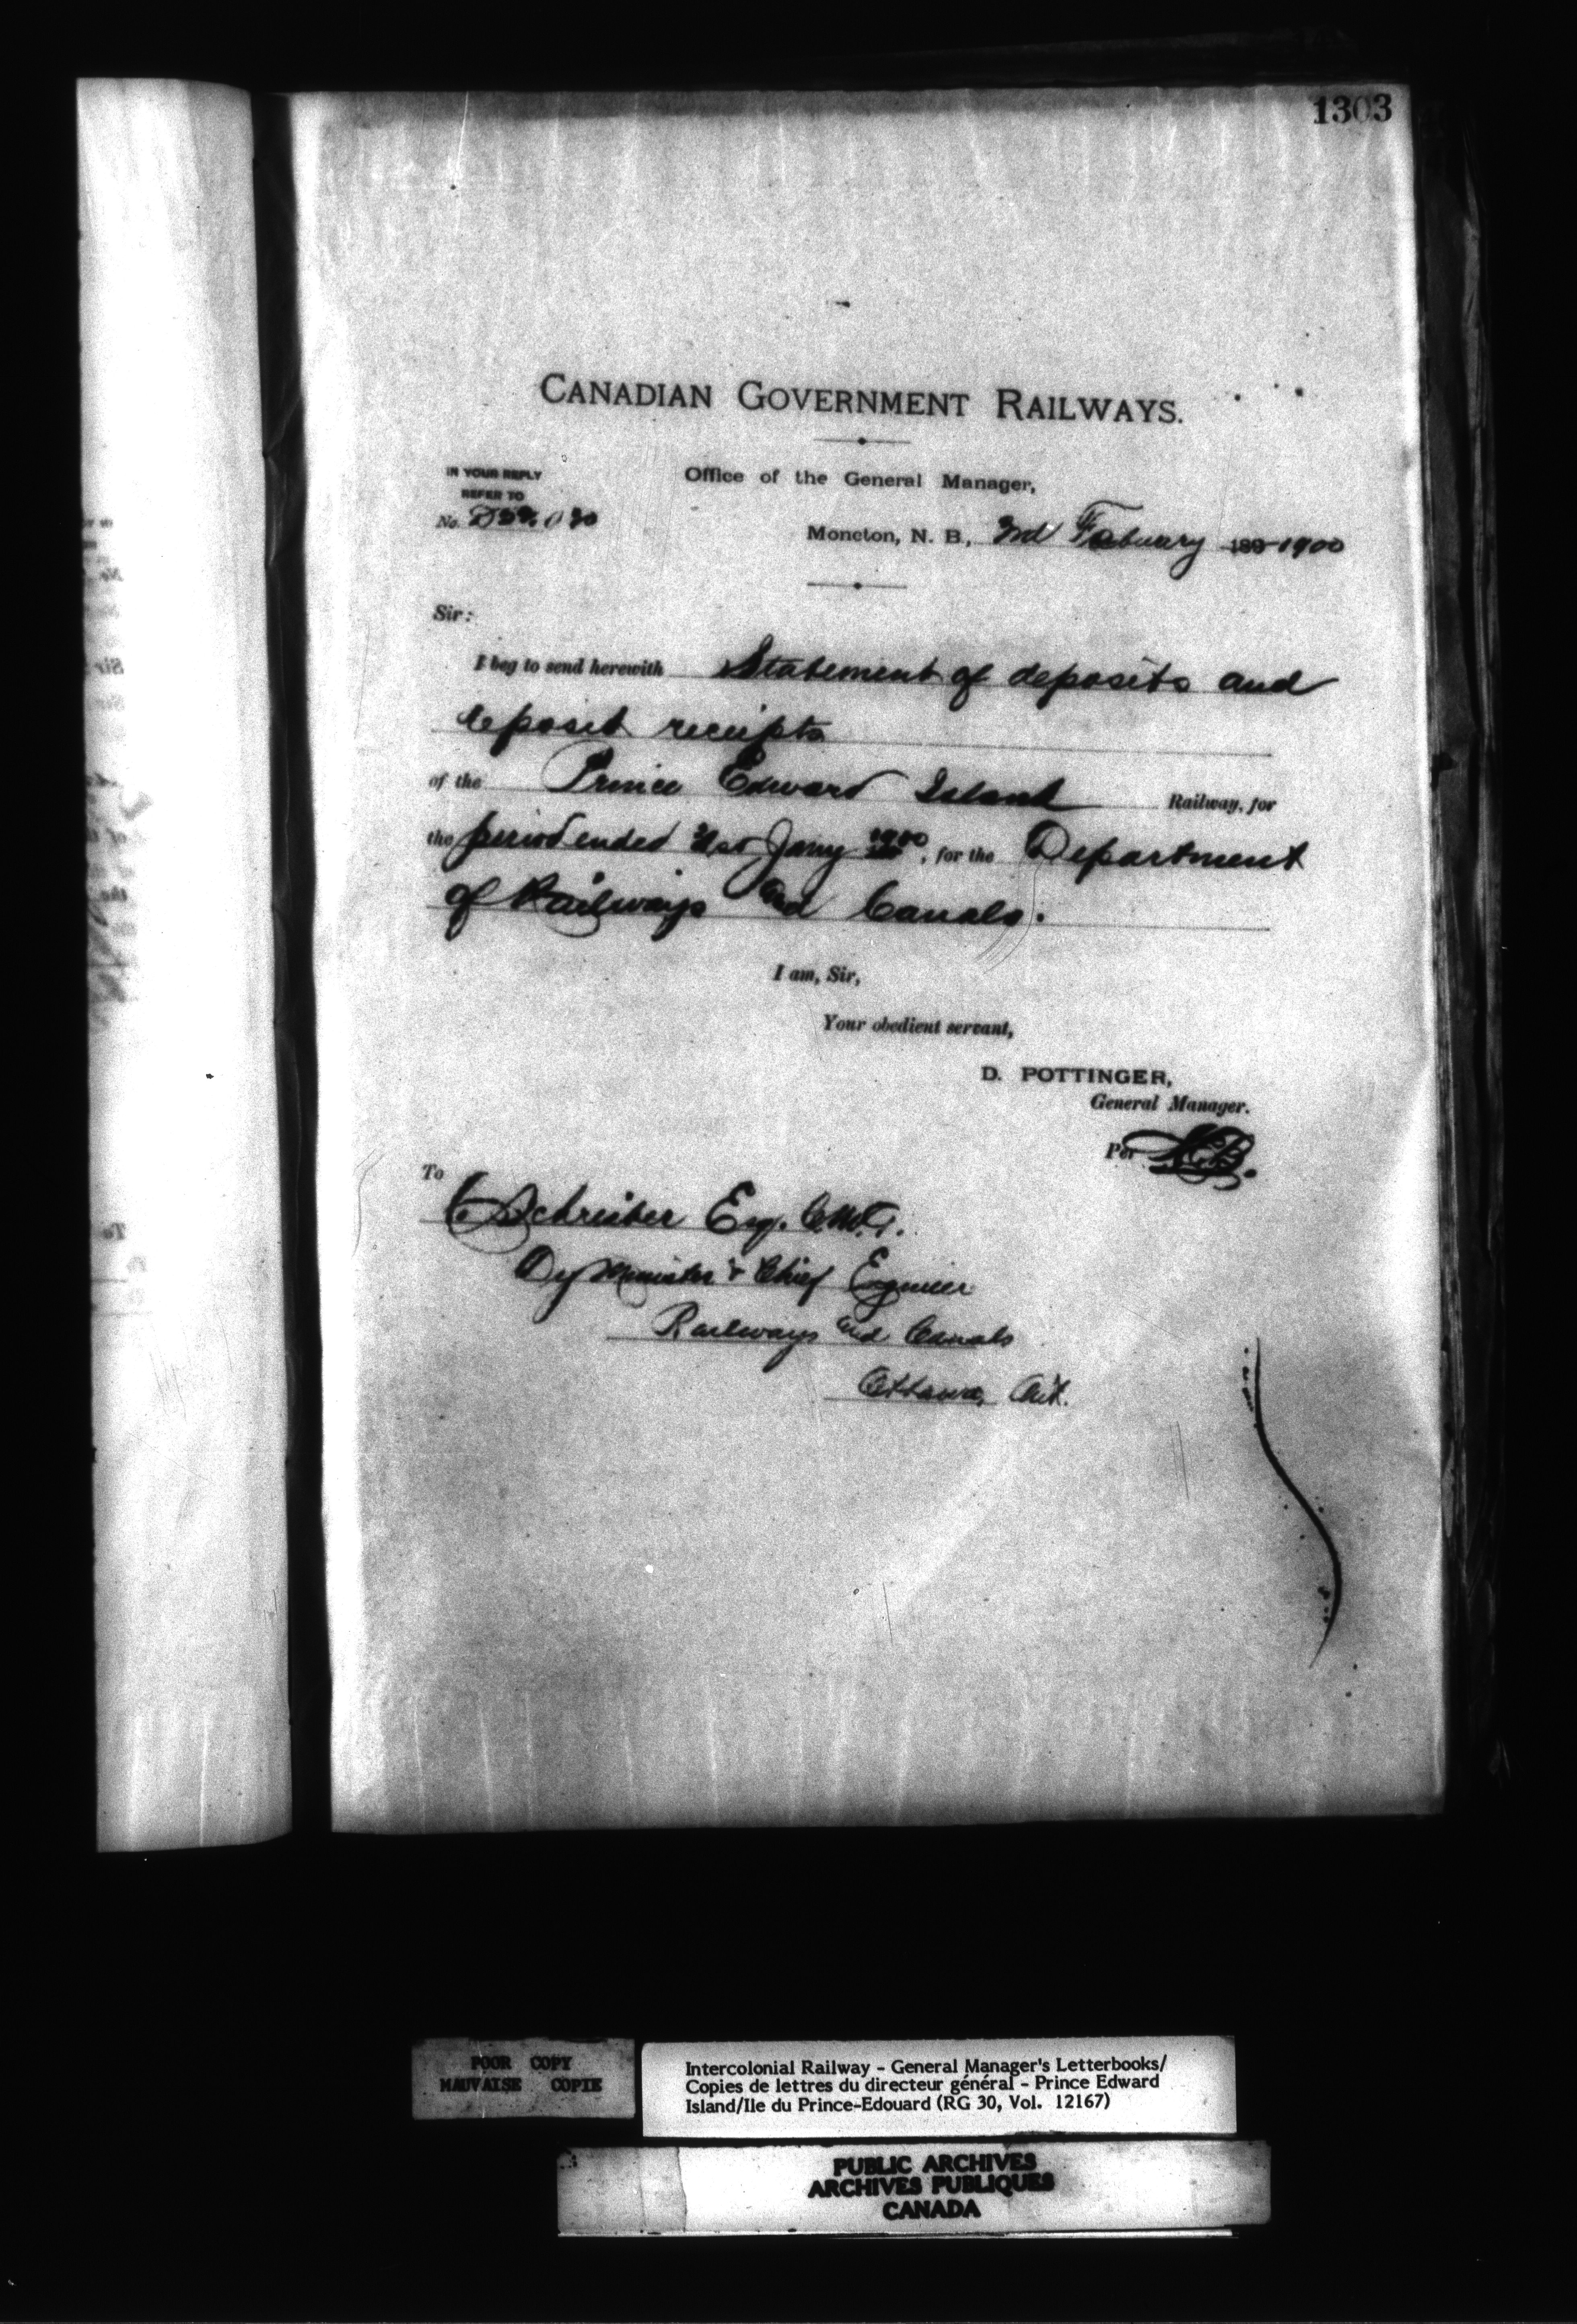 1303
CANADIAN GOVERNMENT RAILWAYS.
IN YOUR REPLY
REFER TO
No.
Office of the General Manager,
Moncton, N. B., Febuary 189 1900
Sir:
I beg to send herewith Statement of deposits and
deposit receipts
of the Prince Edward Island Railway, for
the period ended 31st Jany 1900, for the Department
of Railways and Canals.
I am, Sir,
Your obedient servant,
D. POTTINGER,
General Manager.
Per
To
C Schreiber Esq. C.M.G.
Dy Minister & Chief Egnieer
Railways and Canals
Ottawa, Ont.
POOR COPY
MAUVAISE COPIE
Intercolonial Railway - General Manager's Letterbooks/
Copies de lettres du directeur général - Prince Edward
Island/Ile du Prince-Edouard (RG 30, Vol. 12167)
PUBLIC ARCHIVES
ARCHIVES PUBLIQUES
CANADA